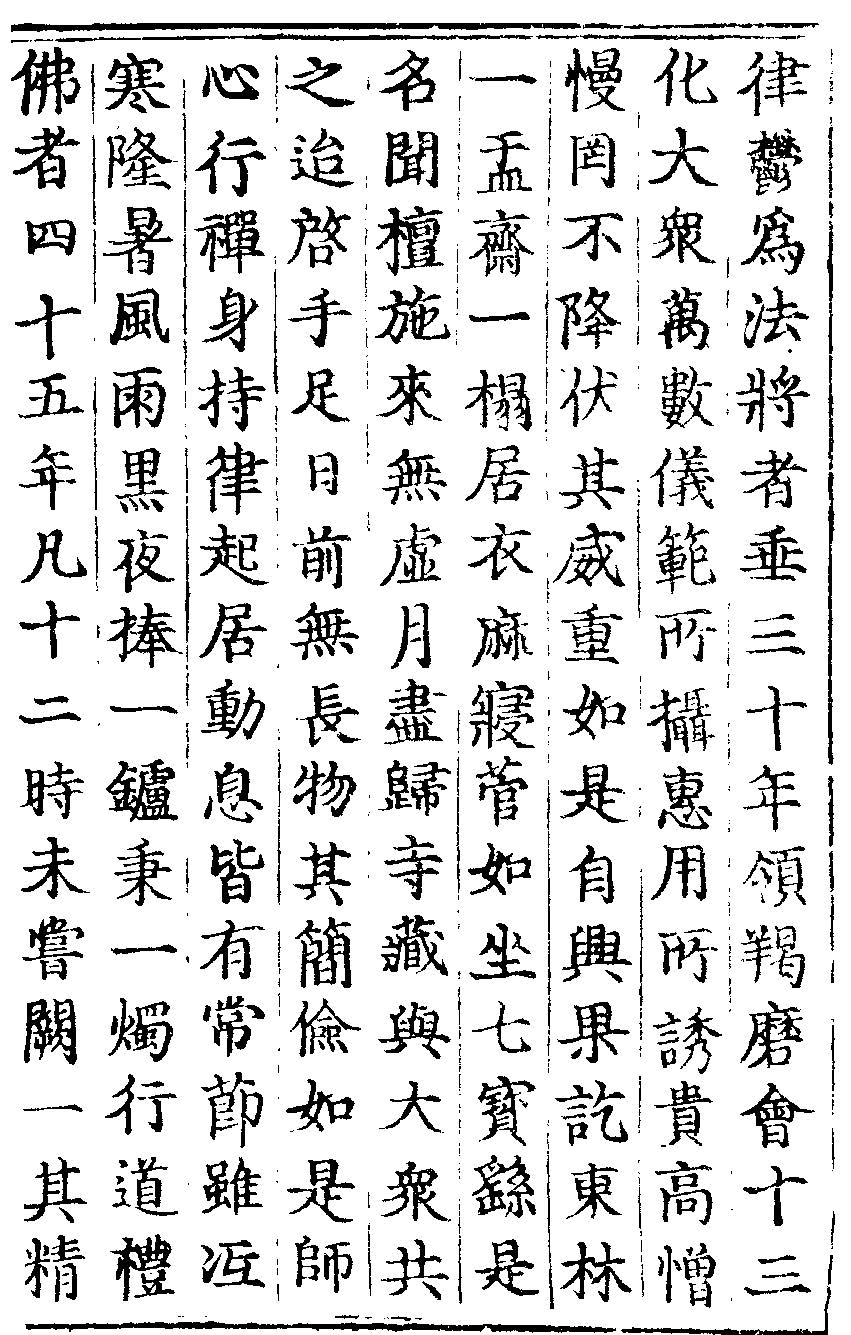 律鬱爲法將者垂三十年領羯磨會十三
化大衆萬數儀範所攝惠用所誘貴高憎
慢罔不降伏其威重如是自興果訖東林
一盂齋一榻居衣麻寢菅如坐七寳繇是
名聞檀施來無虛月盡歸寺藏與大衆共
之迨啓手足日前無長物其簡儉如是師
心行禪身持律起居動息皆有常節雖冱
寒隆暑風雨黒夜捧一鑪秉一燭行道禮
佛者四十五年凡十二時未嘗闕一其精